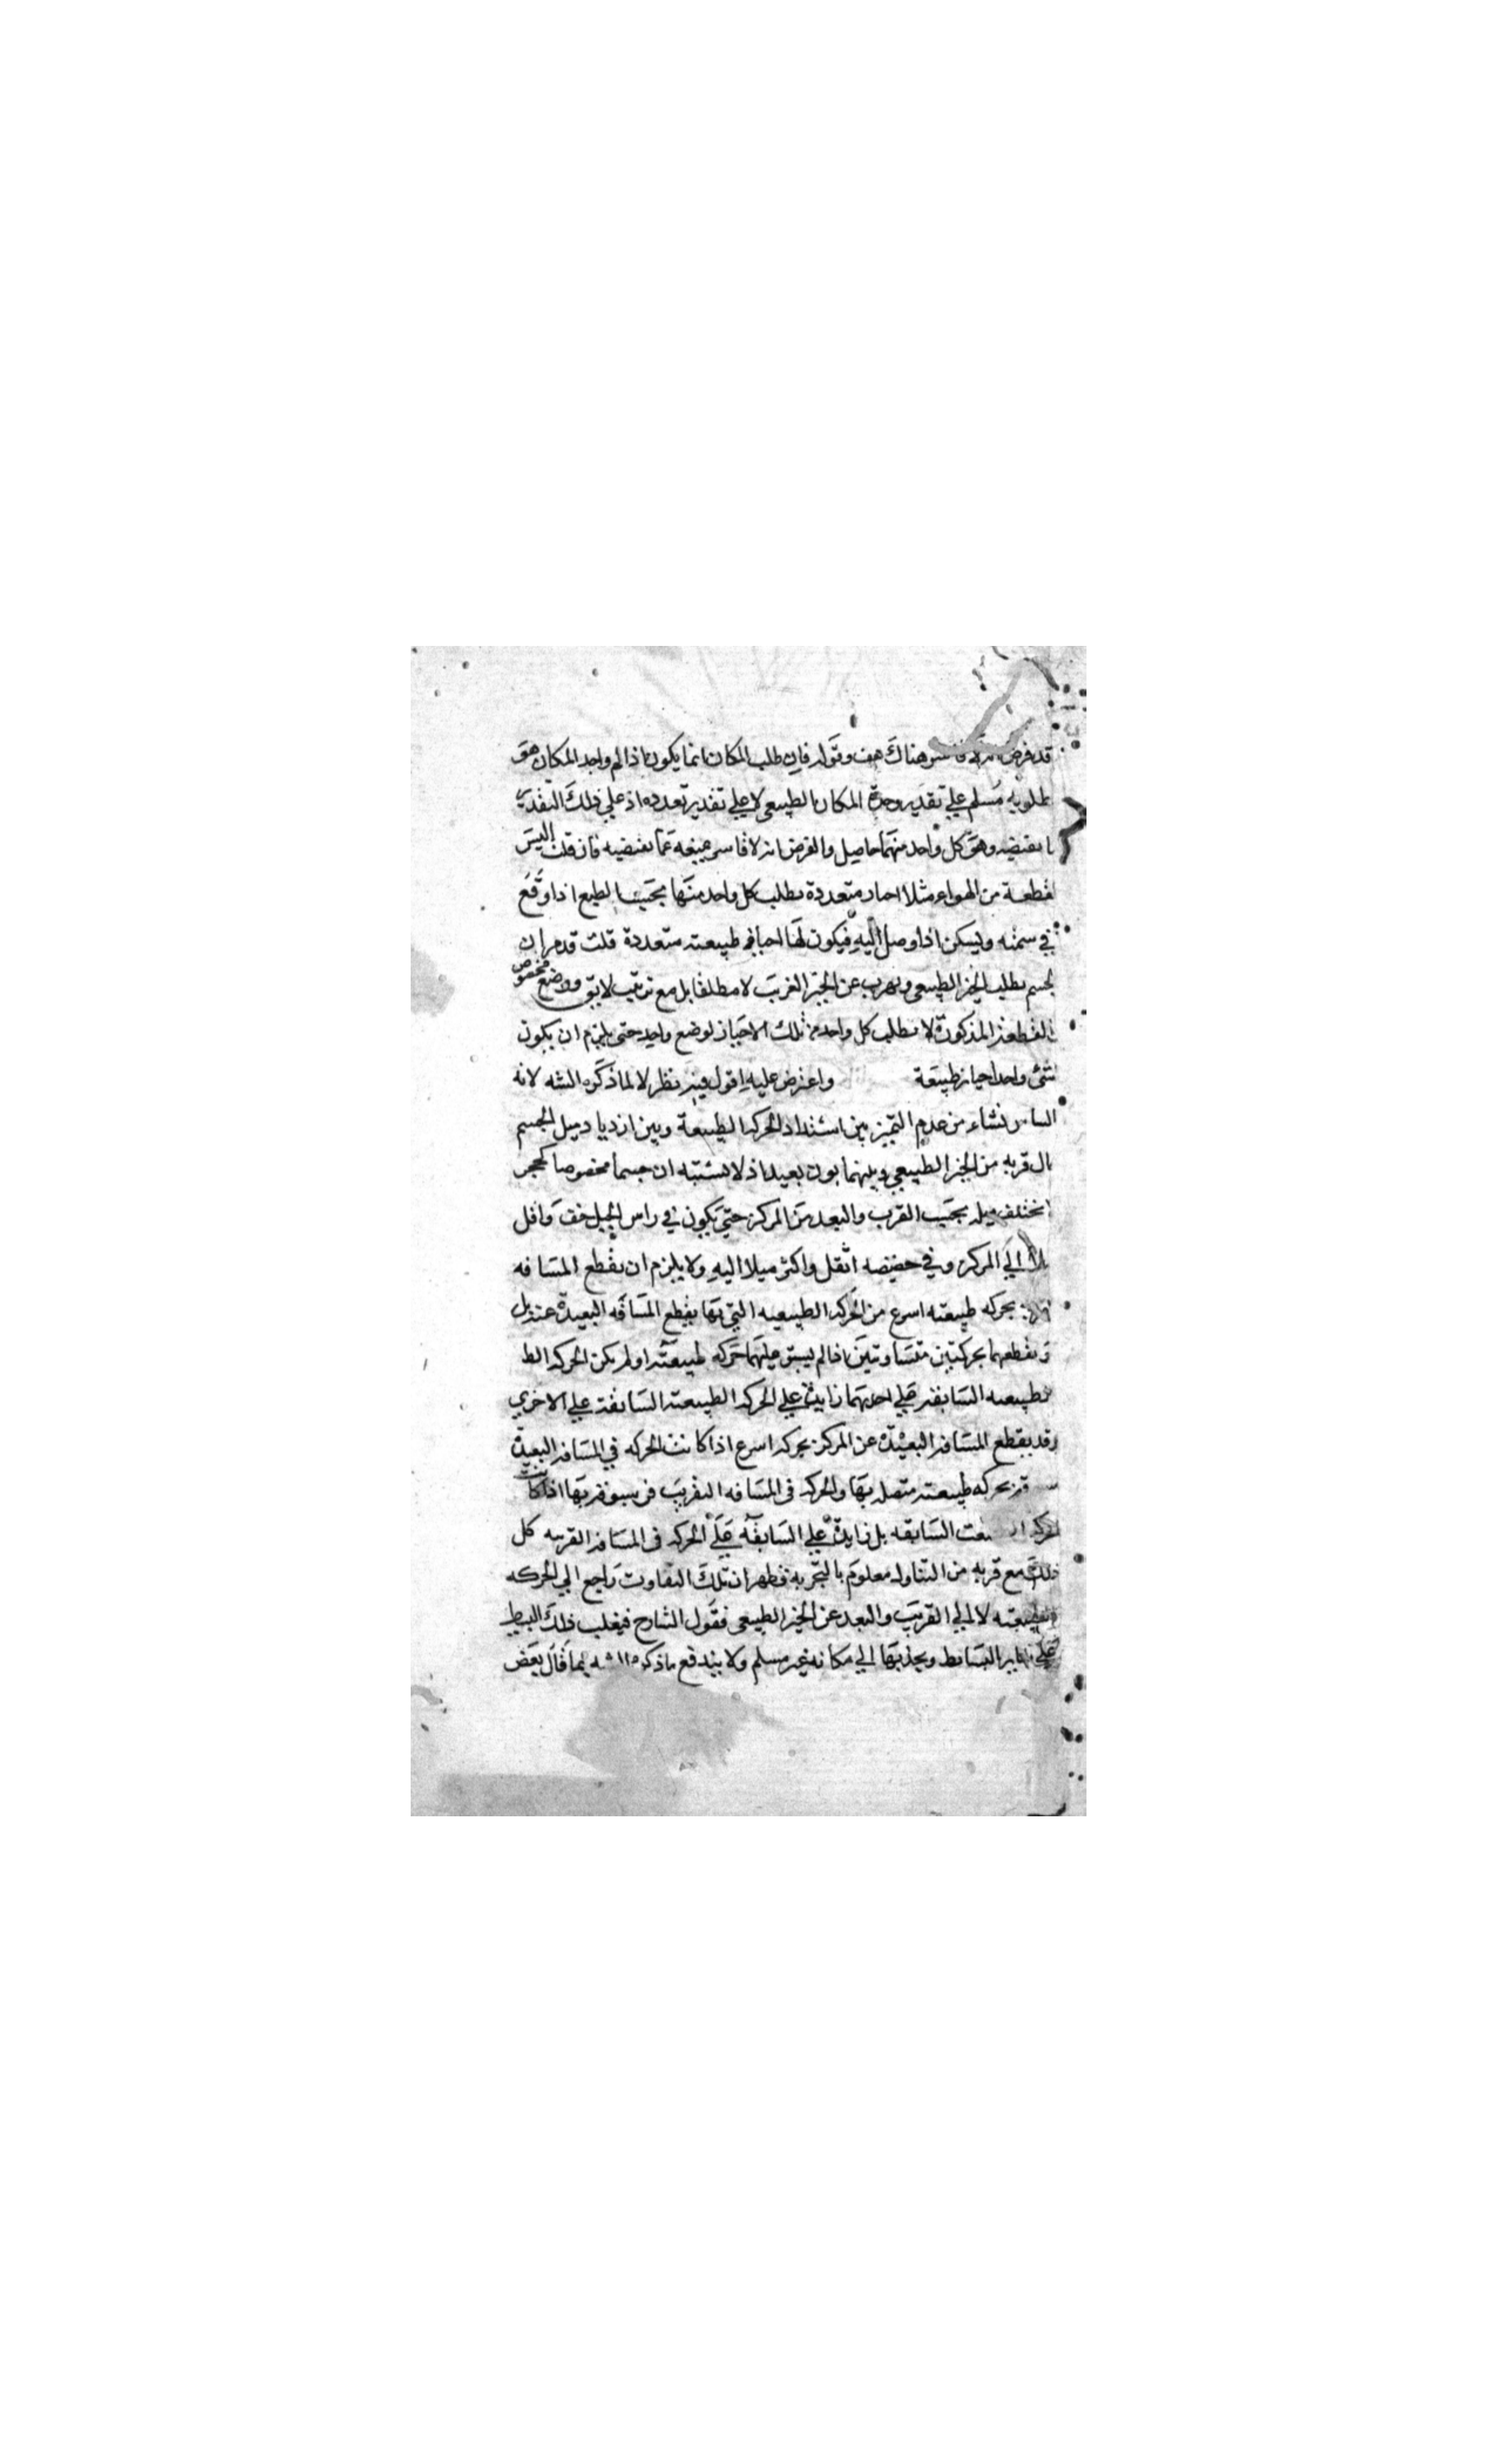 قد فرض انه لا قاسر هناك هف وقوله فان طلب المكان انما يكون اذا لم واجد المكان هو
مطلوبه مسلم علي تقدير وحدة المكان الطبيعي لا علي تقدير تعدده اذ علي ذلك التقدير
ما يقتضيه وهو كل واحد منهما حاصل والفرض انه لا قاسر يمنعه عما يقتضيه فان قلت اليس
لقطعة من الهواء مثلا احياز متعددة يطلب كل واحد منها بحسب الطبع اذا وقع
في سمته ويسكن اذا وصل اليه فيكون لها احياز طبيعته متعددة قلت قد مر ان
الجسم يطلب الحيز الطبيعي ويهرب عن الحيز الغريب لا مطلقا بل مع ترتيب لايق ووضع مخصوص
فالقطعة المذكورة لا تطلب كل واحد من تلك الاحياز لوضع واحد حتى يلزم ان يكون
لشئ واحد احياز طبيعة واعترض عليه اقول فيه نظر لا لما ذكره الشه لانه
نشاء من عدم التميز بين اشتداد الحركه الطبيعة وبين ازدياد ميل الجسم
حال قربه من الحيز الطبيعي وبينهما بون بعيد اذ لا يشتبه ان جسما مخصوصا كحجر
يختلف ميله بحسب القرب والبعد من المركز حتي يكون في راس الجبل خف واقل
ميلا الي المركز وفي حضيضه اثقل واكثر ميلا اليه ولا يلزم ان يقطع المسافه
بحركه طبيعته اسرع من الحركه الطبيعيه التي بها يقطع المسافه البعيدة عنه بل
قد يقطعهما بحركتين متساويتين اذا لم يسبق عليهما حركه طبيعته او لم يكن الحركه الط
الطبيعيه السابقه علي احديهما زايدة علي الحركه الطبيعته السابقة علي الاخري
وقد يقطع المسافه البعيدة عن المركز بحركه اسرع اذا كانت الحركه في المسافه البعيدة
بحركه طبيعته متصله بها والحركه في المسافه القريب اذا كانت
السابقه بل زايدة علي السابقه علي الحركه في المسافه القريبه كل
ذلك مع قربه من التناول معلوم بالتجربه فظهر ان تلك التفاوت راجع الي الحركه
الطبيعته لا الي القريب والبعد عن الحيز الطبيعي فقول الشارح فيغلب ذلك البسيط
علي ساير البسائط ويجذبها الي مكانه غير مسلم ولا يندفع ما ذكره بما قال بعض